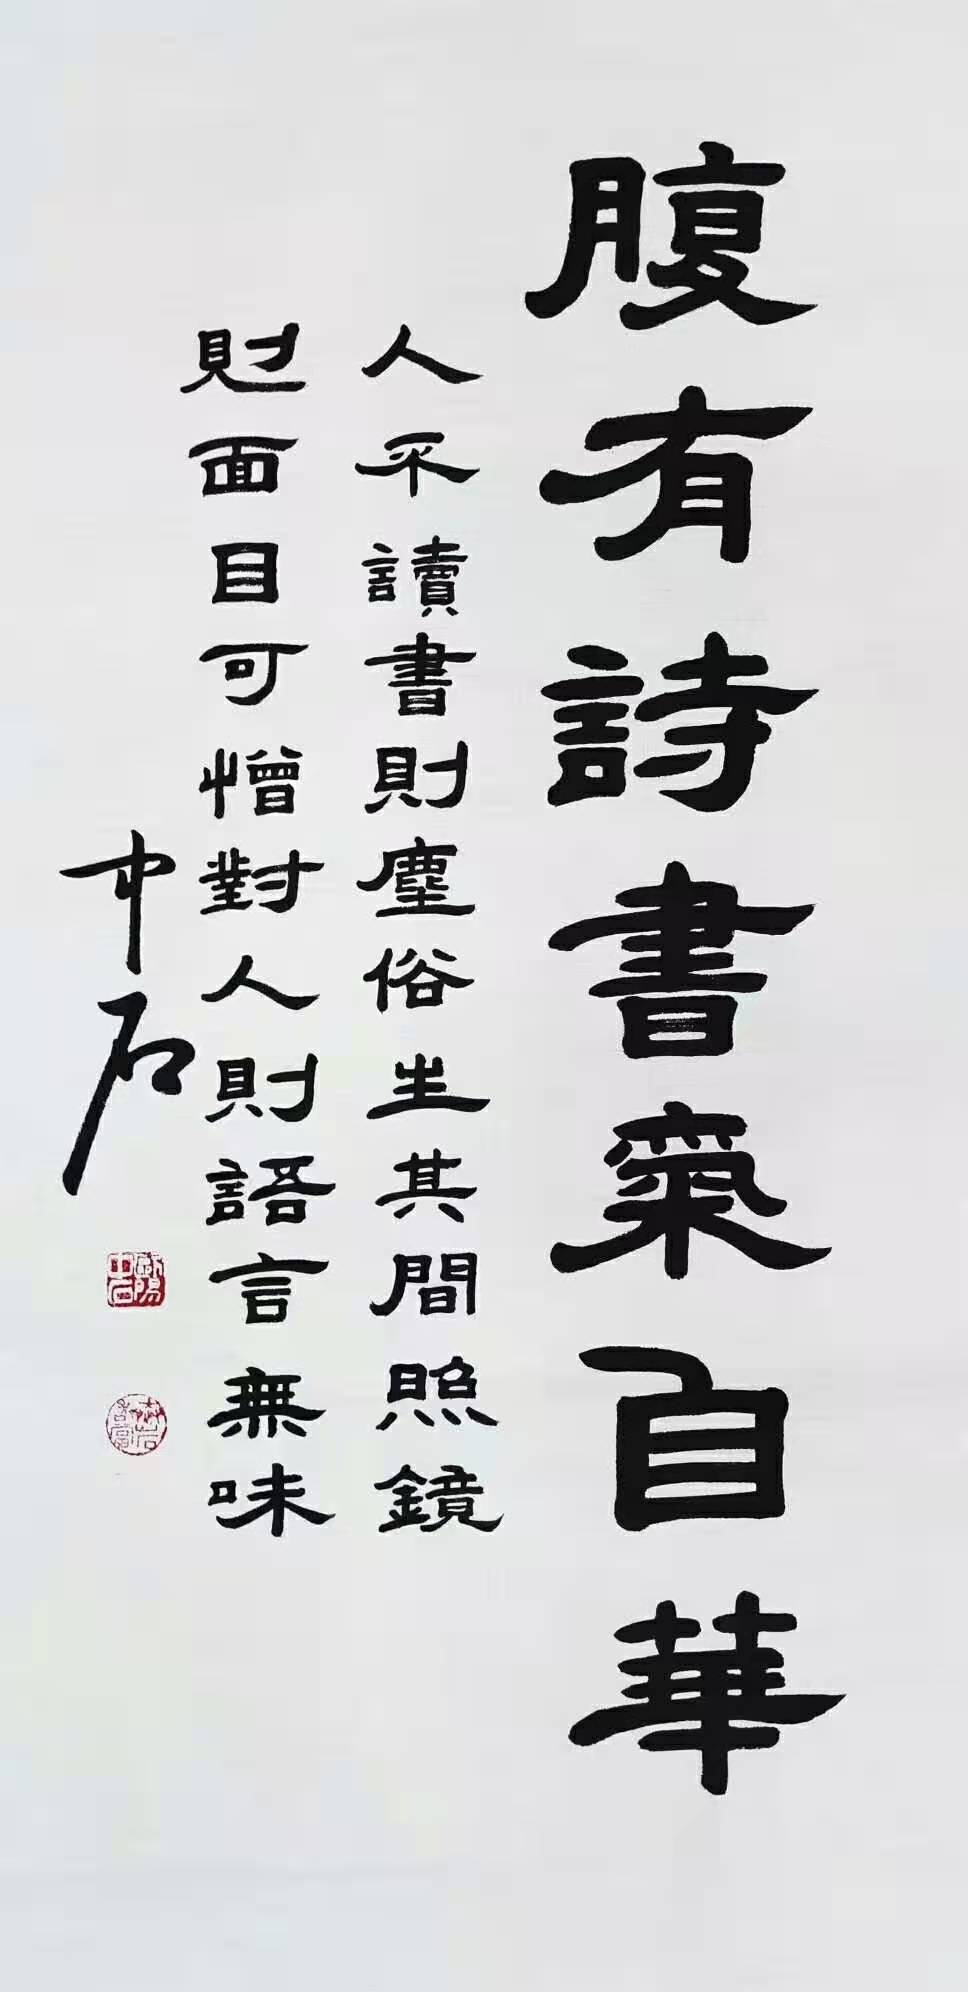 腹有詩書氣自華
人不讀書則塵俗生其間照鏡
則面目可憎對人則語言無味
中石
歐陽中石